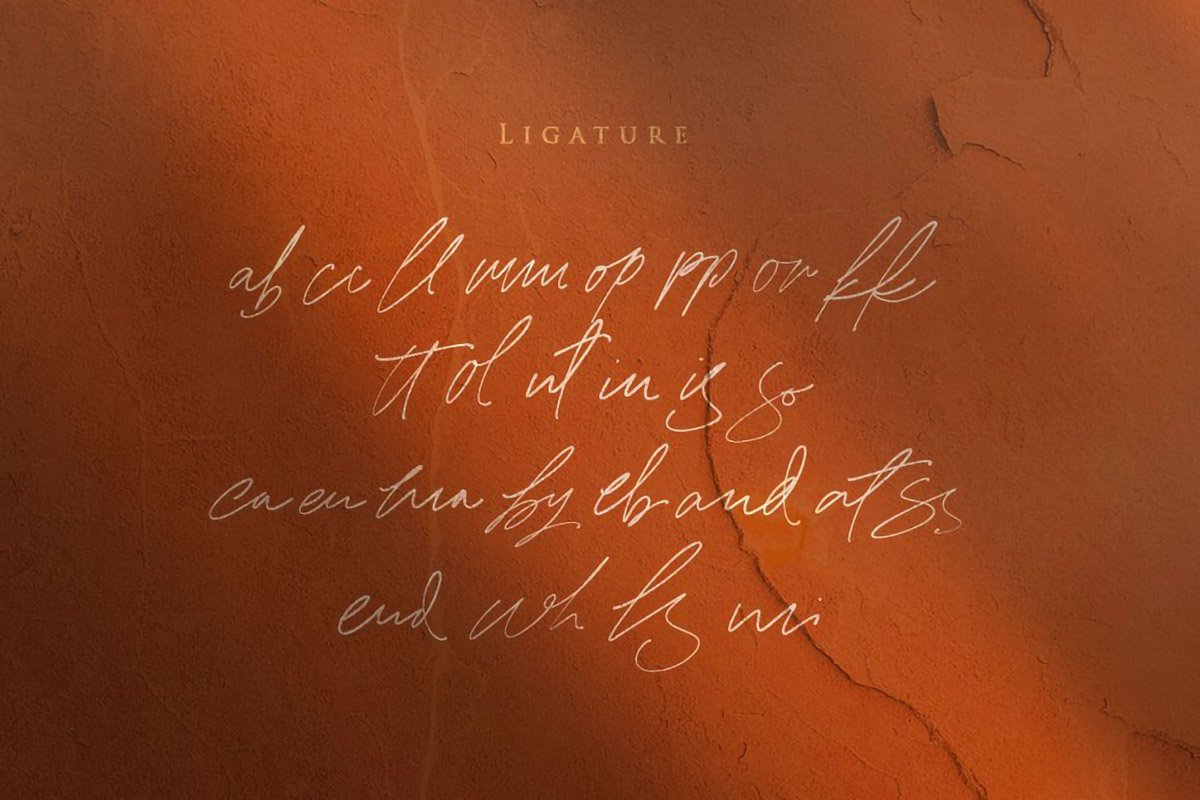 LIGATURE
ab cc ll mm op pp or kk
tt ol nt in is so
ca en ha by eb and at ss
end wh ls ni